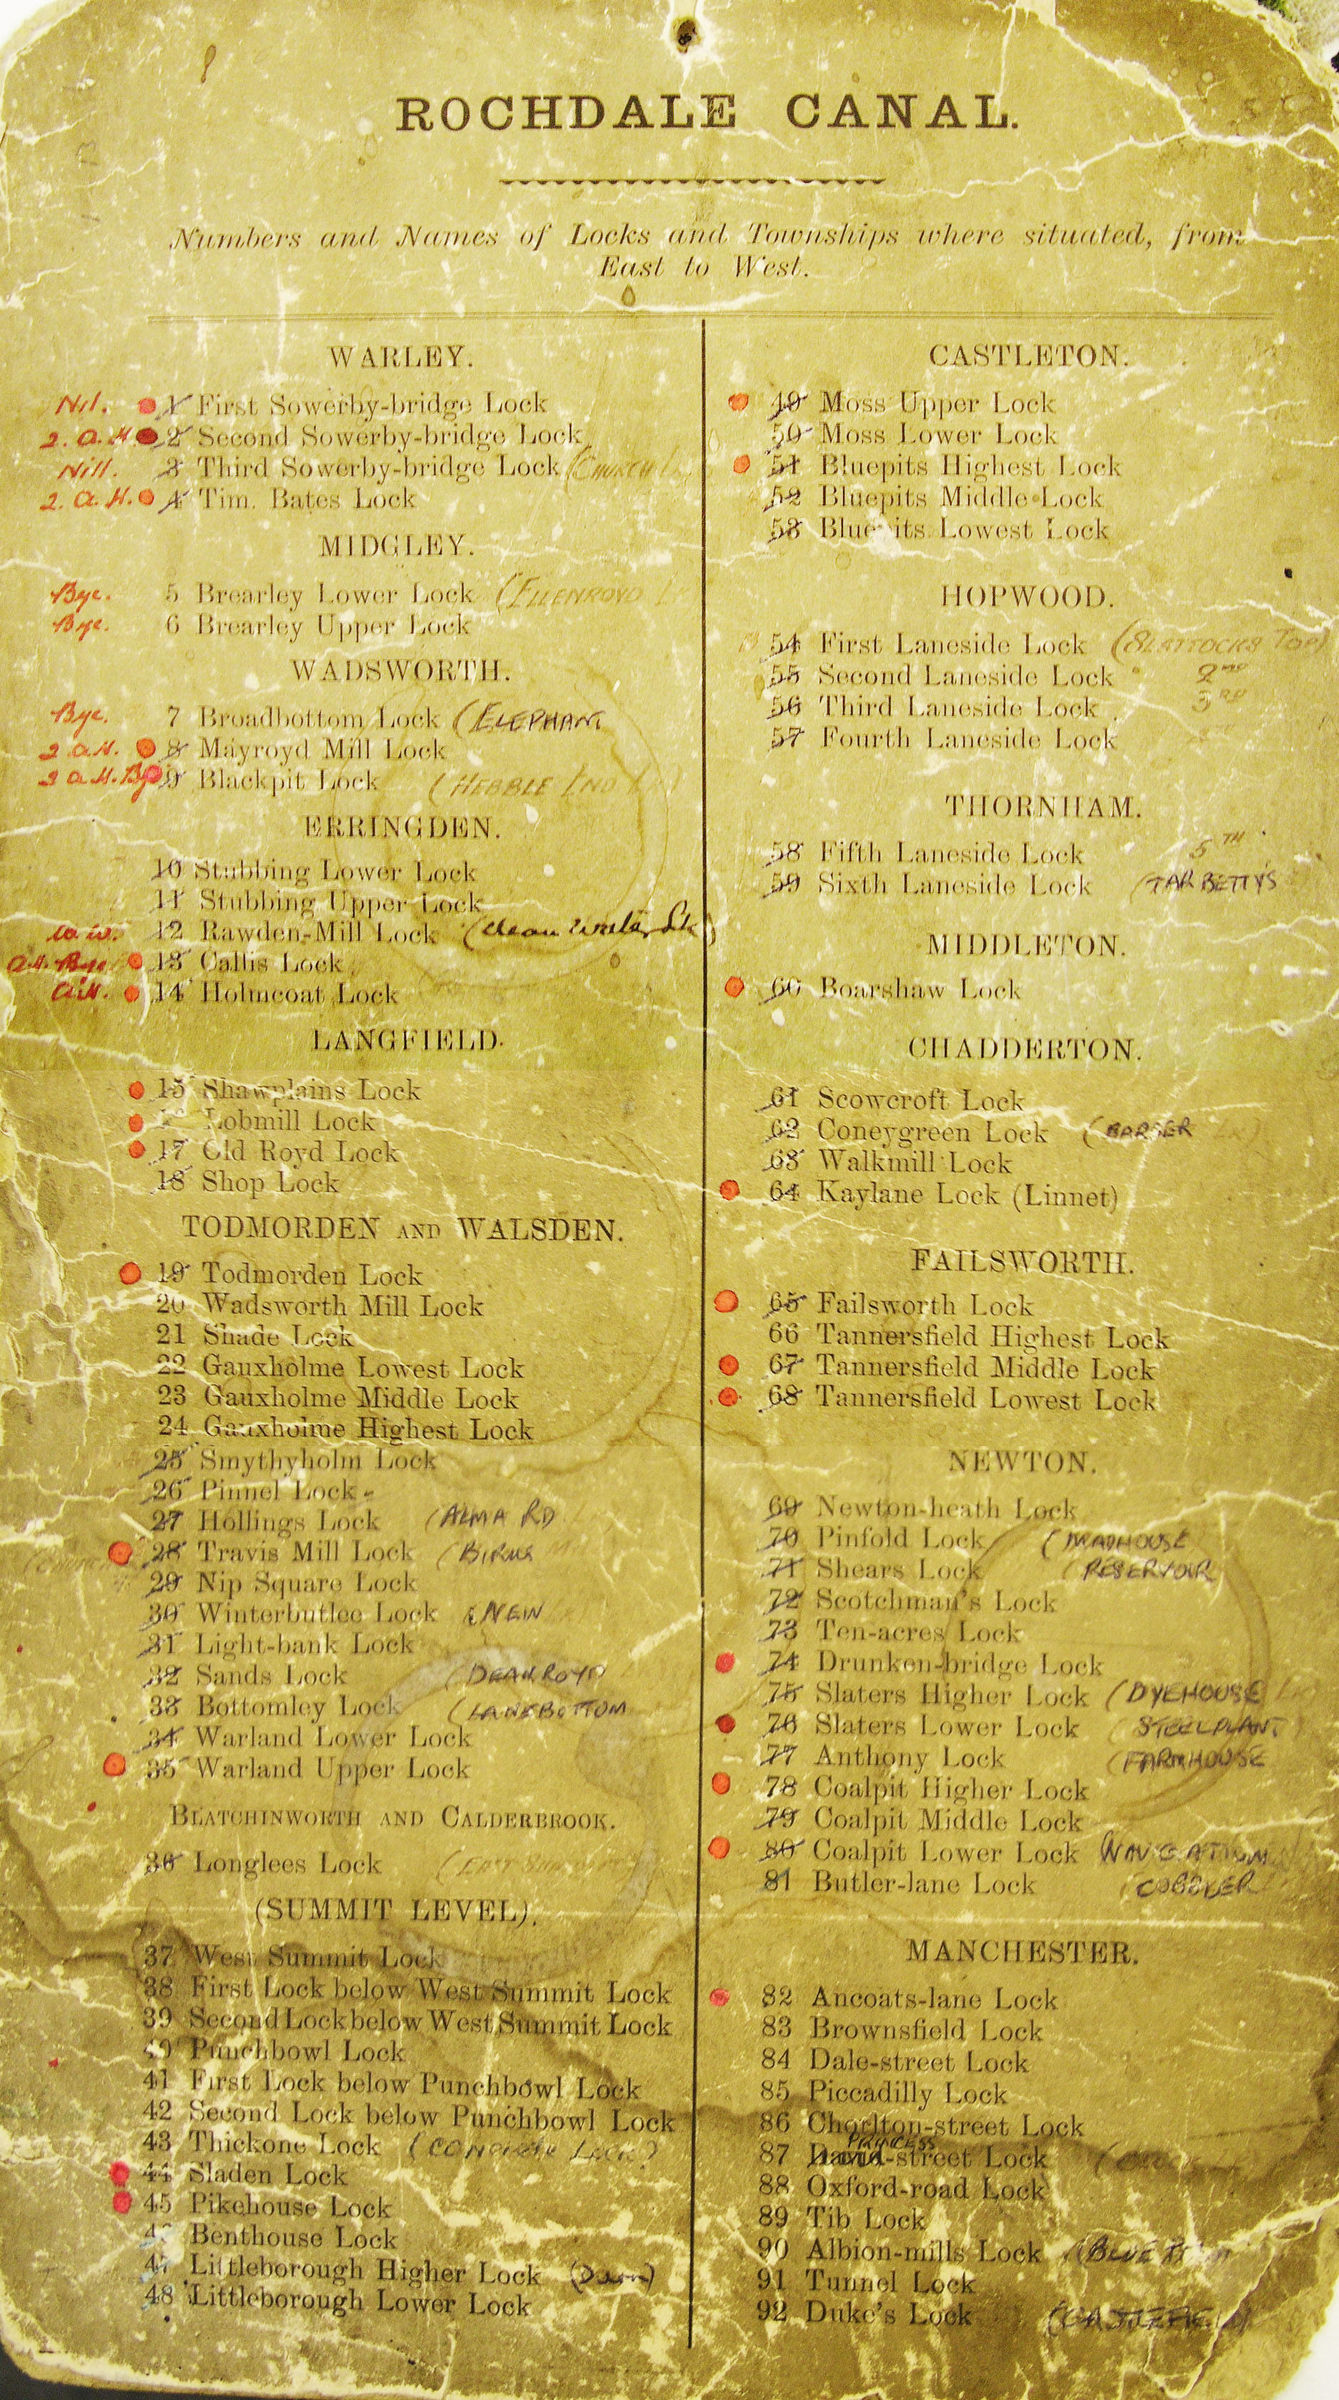 ROCHDALE CANAL.
Numbers and Names of Locks and Townships where situated, from
East to West.
WARLEY.
Nil. 1 First Sowerby-bridge Lock
2. a. H. 2 Second Sowerby-bridge Lock
Nill. 3 Third Sowerby-bridge Lock (CHURCH
2. a. H. 4 Tim. Bates Lock
MIDGLEY.
Bye. 5 Brearley Lower Lock (ELLENROYD
Bye. 6 Brearley Upper Lock
WADSWORTH.
Bye. 7 Broadbottom Lock (ELEPHANT
2 a.H. 8 Mayroyd Mill Lock
9 Blackpit Lock (HEBBLE END
ERRINGDEN.
10 Stubbing Lower Lock
11 Stubbing Upper Lock
12 Rawden-Mill Lock (Clean Water Lk)
13 Callis Lock
14 Holmcoat Lock
LANGFIELD.
15 Shawplains Lock
Lobmill Lock
17 Old Royd Lock
18 Shop Lock
TODMORDEN AND WALSDEN.
19 Todmorden Lock
20 Wadsworth Mill Lock
21 Shade Lock
22 Gauxholme Lowest Lock
23 Gauxholme Middle Lock
24 Gauxholme Highest Lock
25 Smythyholm Lock
26 Pinnel Lock
27 Hollings Lock (ALMA RD
28 Travis Mill Lock (BIRKS
29 Nip Square Lock
30 Winterbutlee Lock (NEW
31 Light-bank Lock
32 Sands Lock (DEANROYD
33 Bottomley Lock (LANEBOTTOM
34 Warland Lower Lock
35 Warland Upper Lock
BLATCHINWORTH AND CALDERBROOK.
36 Longlees Lock (EAST SUMMIT
(SUMMIT LEVEL).
37 West Summit Lock
38 First Lock below West Summit Lock
39 Second Lock below West Summit Lock
40 Punchbowl Lock
41 First Lock below Punchbowl Lock
42 Second Lock below Punchbowl Lock
43 Thickone Lock (CONCRETE LOCK?
44 Sladen Lock
45 Pikehouse Lock
Benthouse Lock
47 Littleborough Higher Lock
48 Littleborough Lower Lock
CASTLETON.
49 Moss Upper Lock
50 Moss Lower Lock
51 Bluepits Highest Lock
52 Bluepits Middle Lock
53 Bluepits Lowest Lock
HOPWOOD.
54 First Laneside Lock (SLATTOCKS TOP)
55 Second Laneside Lock 2ND
56 Third Laneside Lock 3RD
57 Fourth Laneside Lock
THORNHAM.
58 Fifth Laneside Lock 5TH
59 Sixth Laneside Lock (TAR BETTY'S
MIDDLETON.
60 Boarshaw Lock
CHADDERTON.
61 Scowcroft Lock
62 Coneygreen Lock (BARBER LK)
63 Walkmill Lock
64 Kaylane Lock (Linnet)
FAILSWORTH.
65 Failsworth Lock
66 Tannersfield Highest Lock
67 Tannersfield Middle Lock
68 Tannersfield Lowest Lock
NEWTON.
69 Newton-heath Lock
70 Pinfold Lock (MADHOUSE
71 Shears Lock (RESERVOIR
72 Scotchman's Lock
73 Ten-acres Lock
74 Drunken-bridge Lock
75 Slaters Higher Lock (DYEHOUSE
76 Slaters Lower Lock (STEELPLANT
77 Anthony Lock (FARMHOUSE
78 Coalpit Higher Lock
79 Coalpit Middle Lock
80 Coalpit Lower Lock (NAVIGATION
81 Butler-lane Lock (COBBLER
MANCHESTER.
82 Ancoats-lane Lock
83 Brownsfield Lock
84 Dale-street Lock
85 Piccadilly Lock
86 Chorlton-street Lock
PRINCESS
87 David-street Lock
88 Oxford-road Lock
89 Tib Lock
90 Albion-mills Lock (BLUE
91 Tunnel Lock
92 Duke's Lock (CASTLEFIELD)